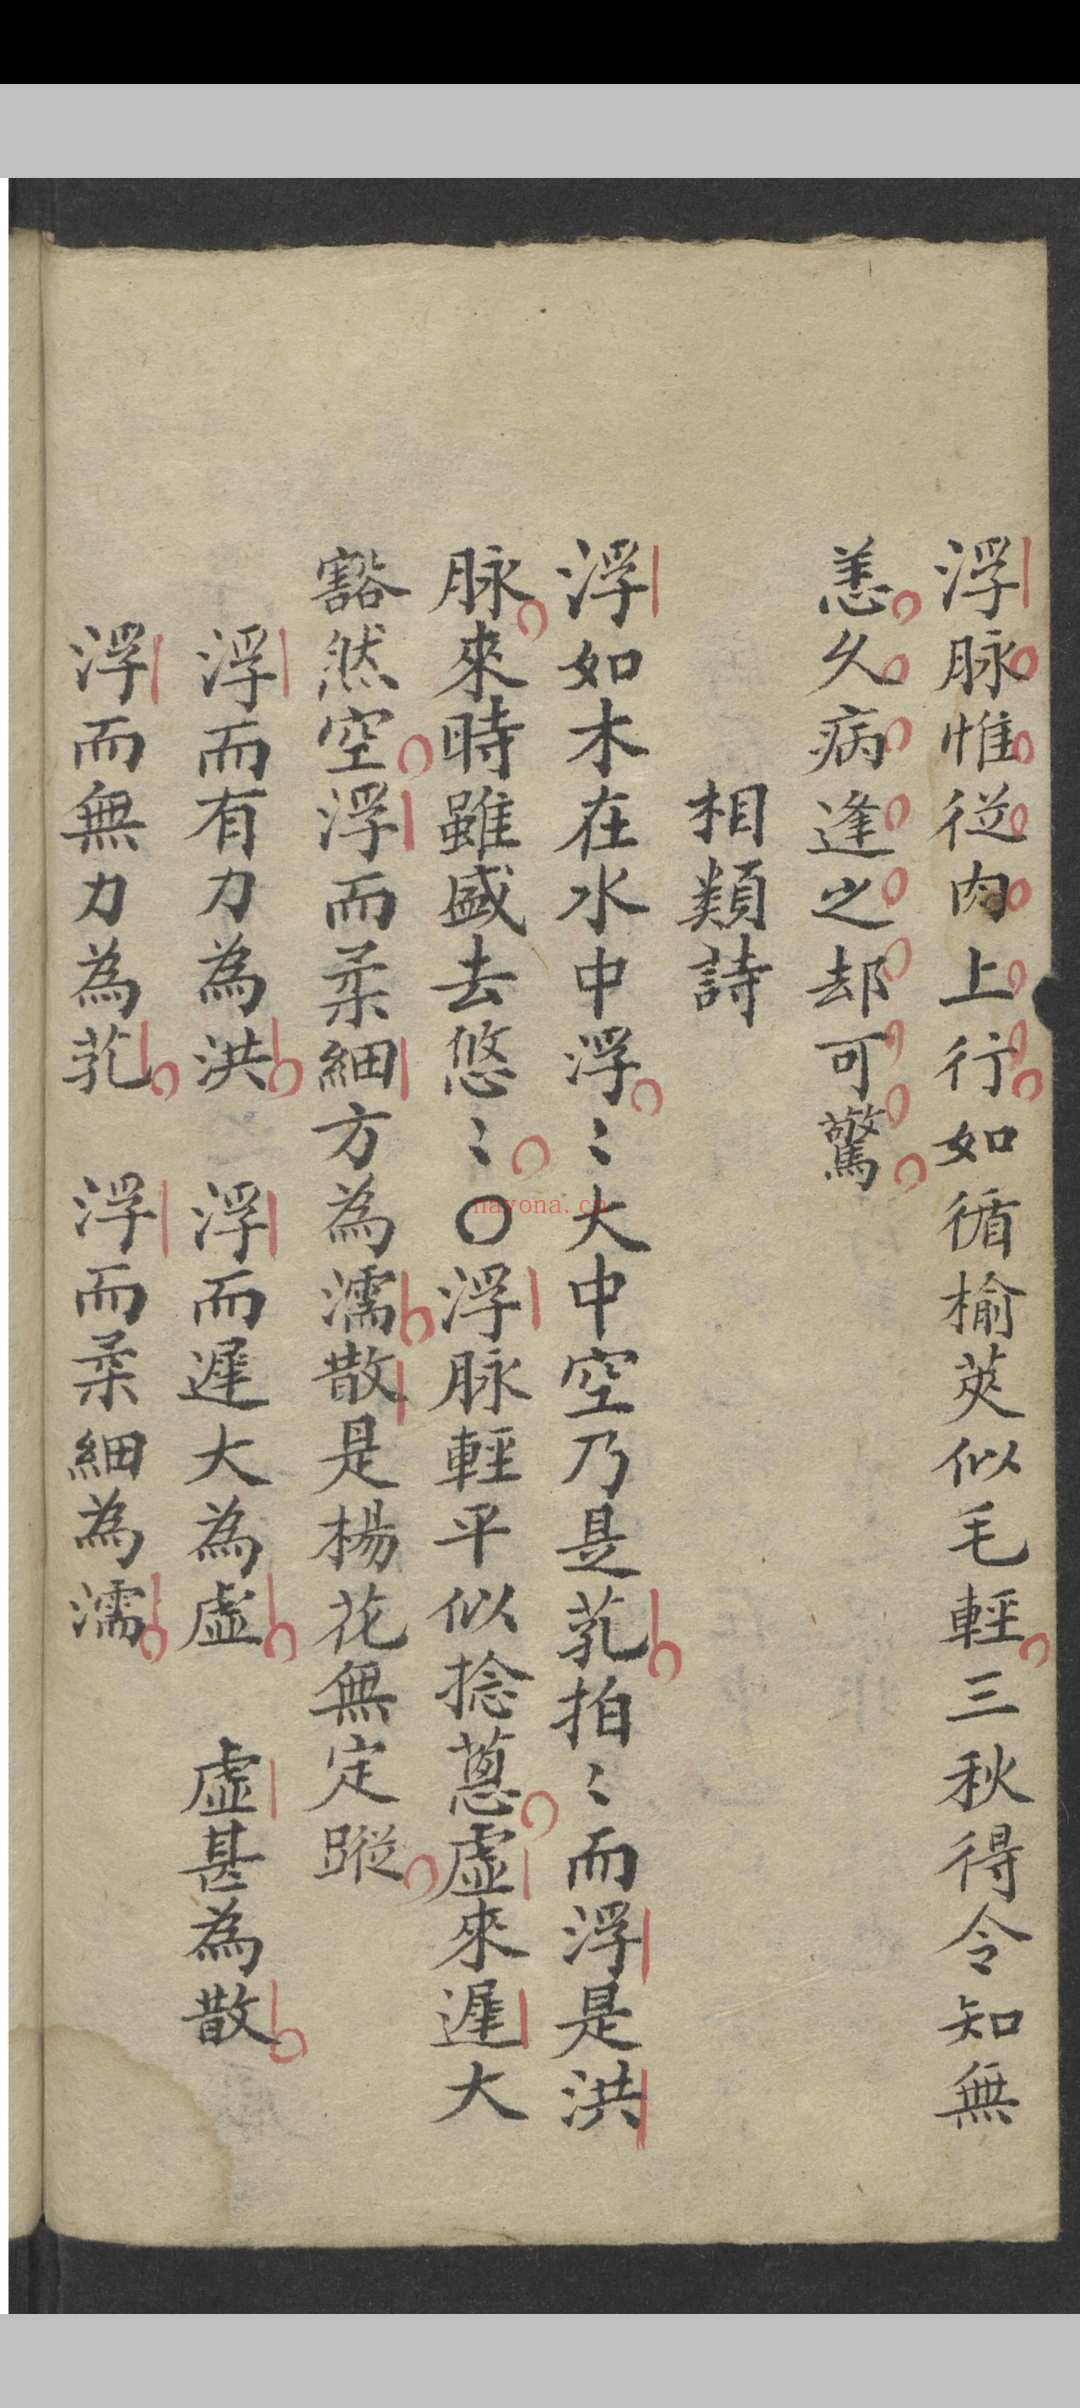 浮脉惟從肉上行如循榆莢似毛輕三秋得令知無
恙久病逢之却可驚
相類詩
浮如木在水中浮〻大中空乃是芤拍〻而浮是洪
脉來時雖盛去悠〻〇浮脉輕平似捻蔥虛來遲大
豁然空浮而柔細方為濡散是楊花無定蹤
浮而有力為洪　浮而遲大為虛　虛甚為散
浮而無力為芤　浮而柔細為濡
nayona.cn